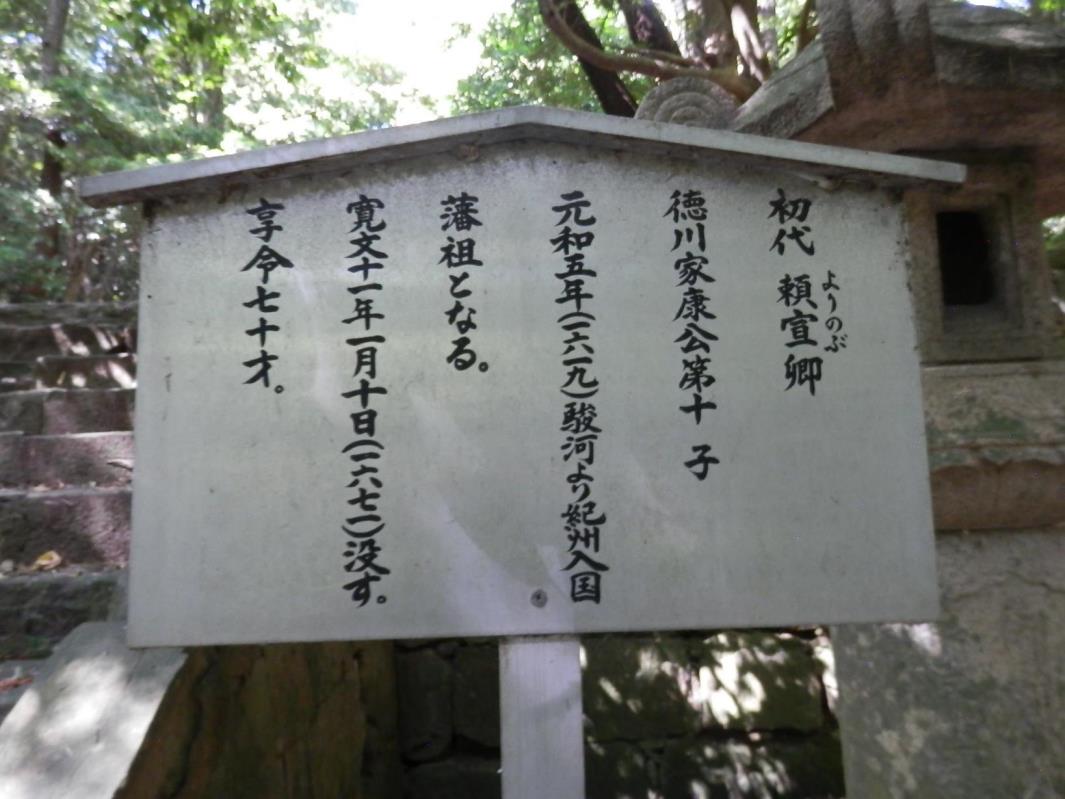 初代 頼宣卿
よりのぶ
徳川家康公第十 子
元和五年(一六一九)駿河より紀州入国
藩祖となる。
寛文十一年一月十日(一六七一)没す。
享令七十才。